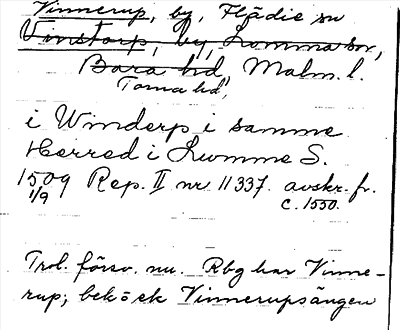 Vinnerup, by, Flädie sn
Vinstorp, by, Lomma sn,
Bara hd, Malm. l.
Torna hd,
i Winderp i samme
Herred i Lwmme S.
1509 Rep. II nr 11337. avskr. fr.
1/9 c. 1550.
Trol. försv. nu. Rbg har Vinne-
rup; bek o ek Vinnerupsängen